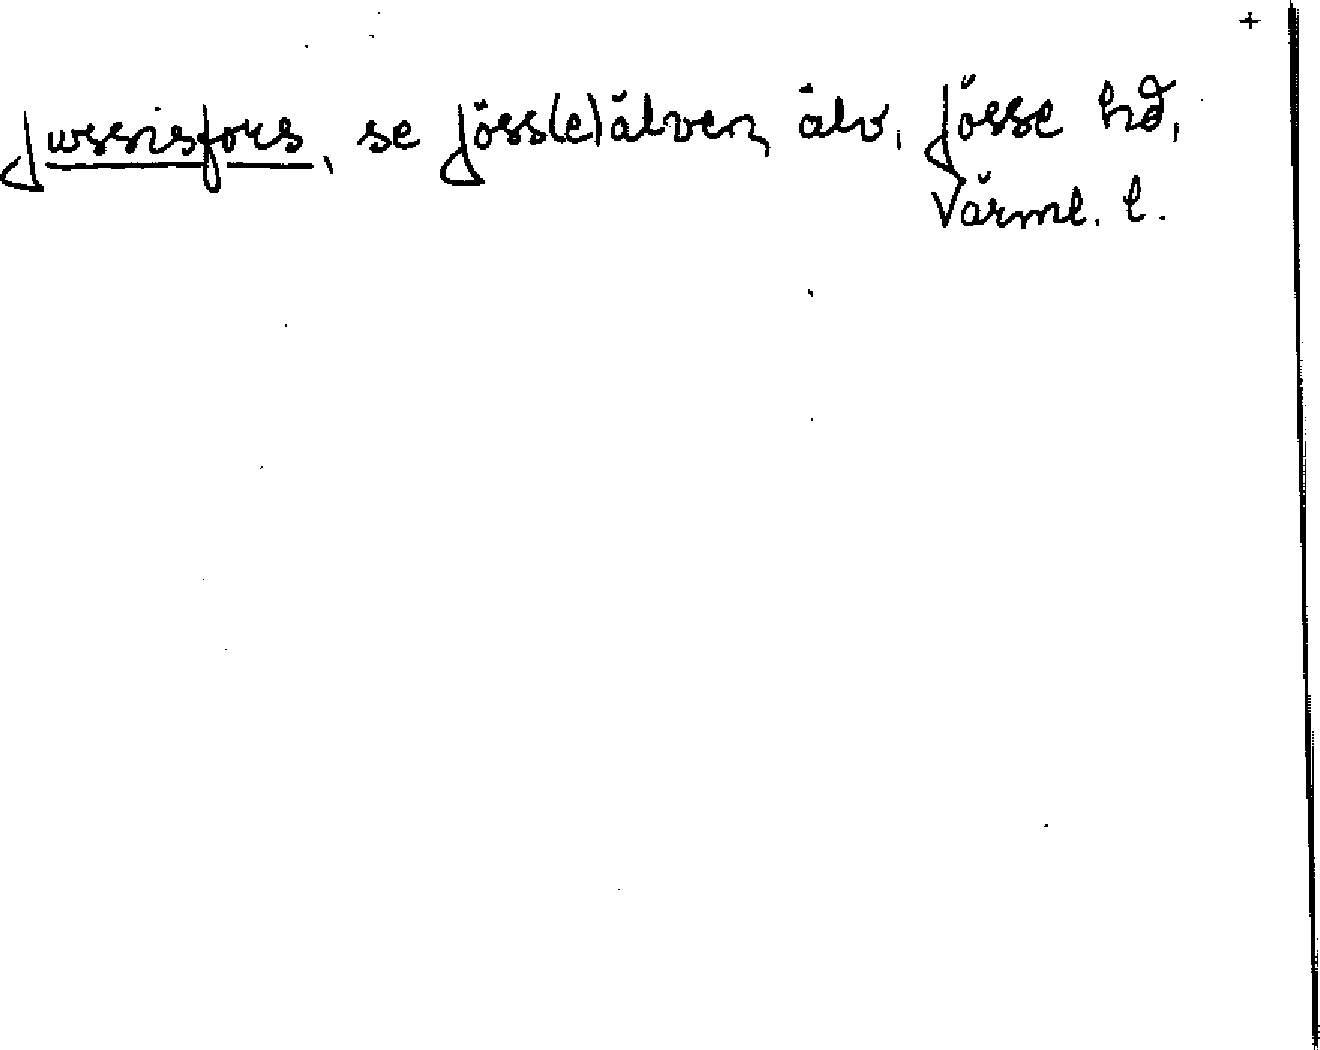 +
Jwssisfors, se Jöss(e)älven, älv, Jösse hd,
Värml. l.